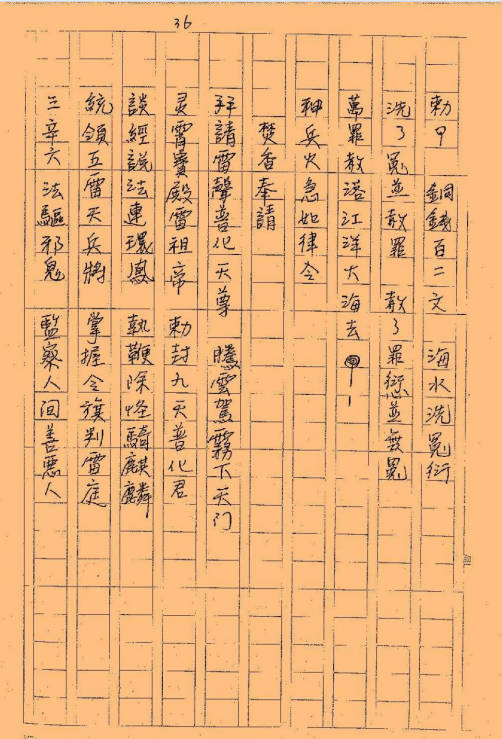 36
勅甲 銅錢百二文 海水洗冤衍
洗了冤並赦罪 赦了罪愆並無冤
萬罪赦落江洋大海去
神兵火急如律令
焚香奉請
拜請雷聲善化天尊 騰雲駕霧下天门
灵霄寶殿雷祖帝 勅封九天善化君
談經說法連環鳳 執鞭除怪騎麒麟
統領五雷天兵將 掌握令旗判雷庭
三辛六法驅邪鬼 監察人间善惡人